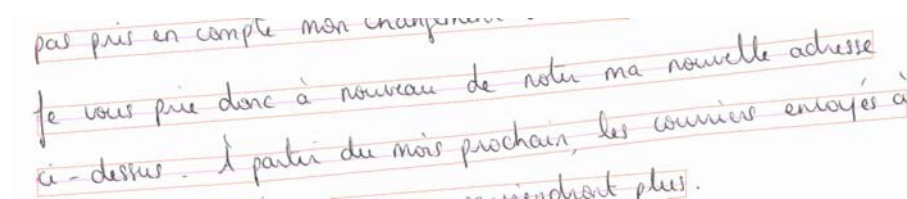 pas pris en compte mon changement
Je vous prie donc à nouveau de noter ma nouvelle adresse
ci-dessus. À partir du mois prochain, les courriers envoyés à
plus.